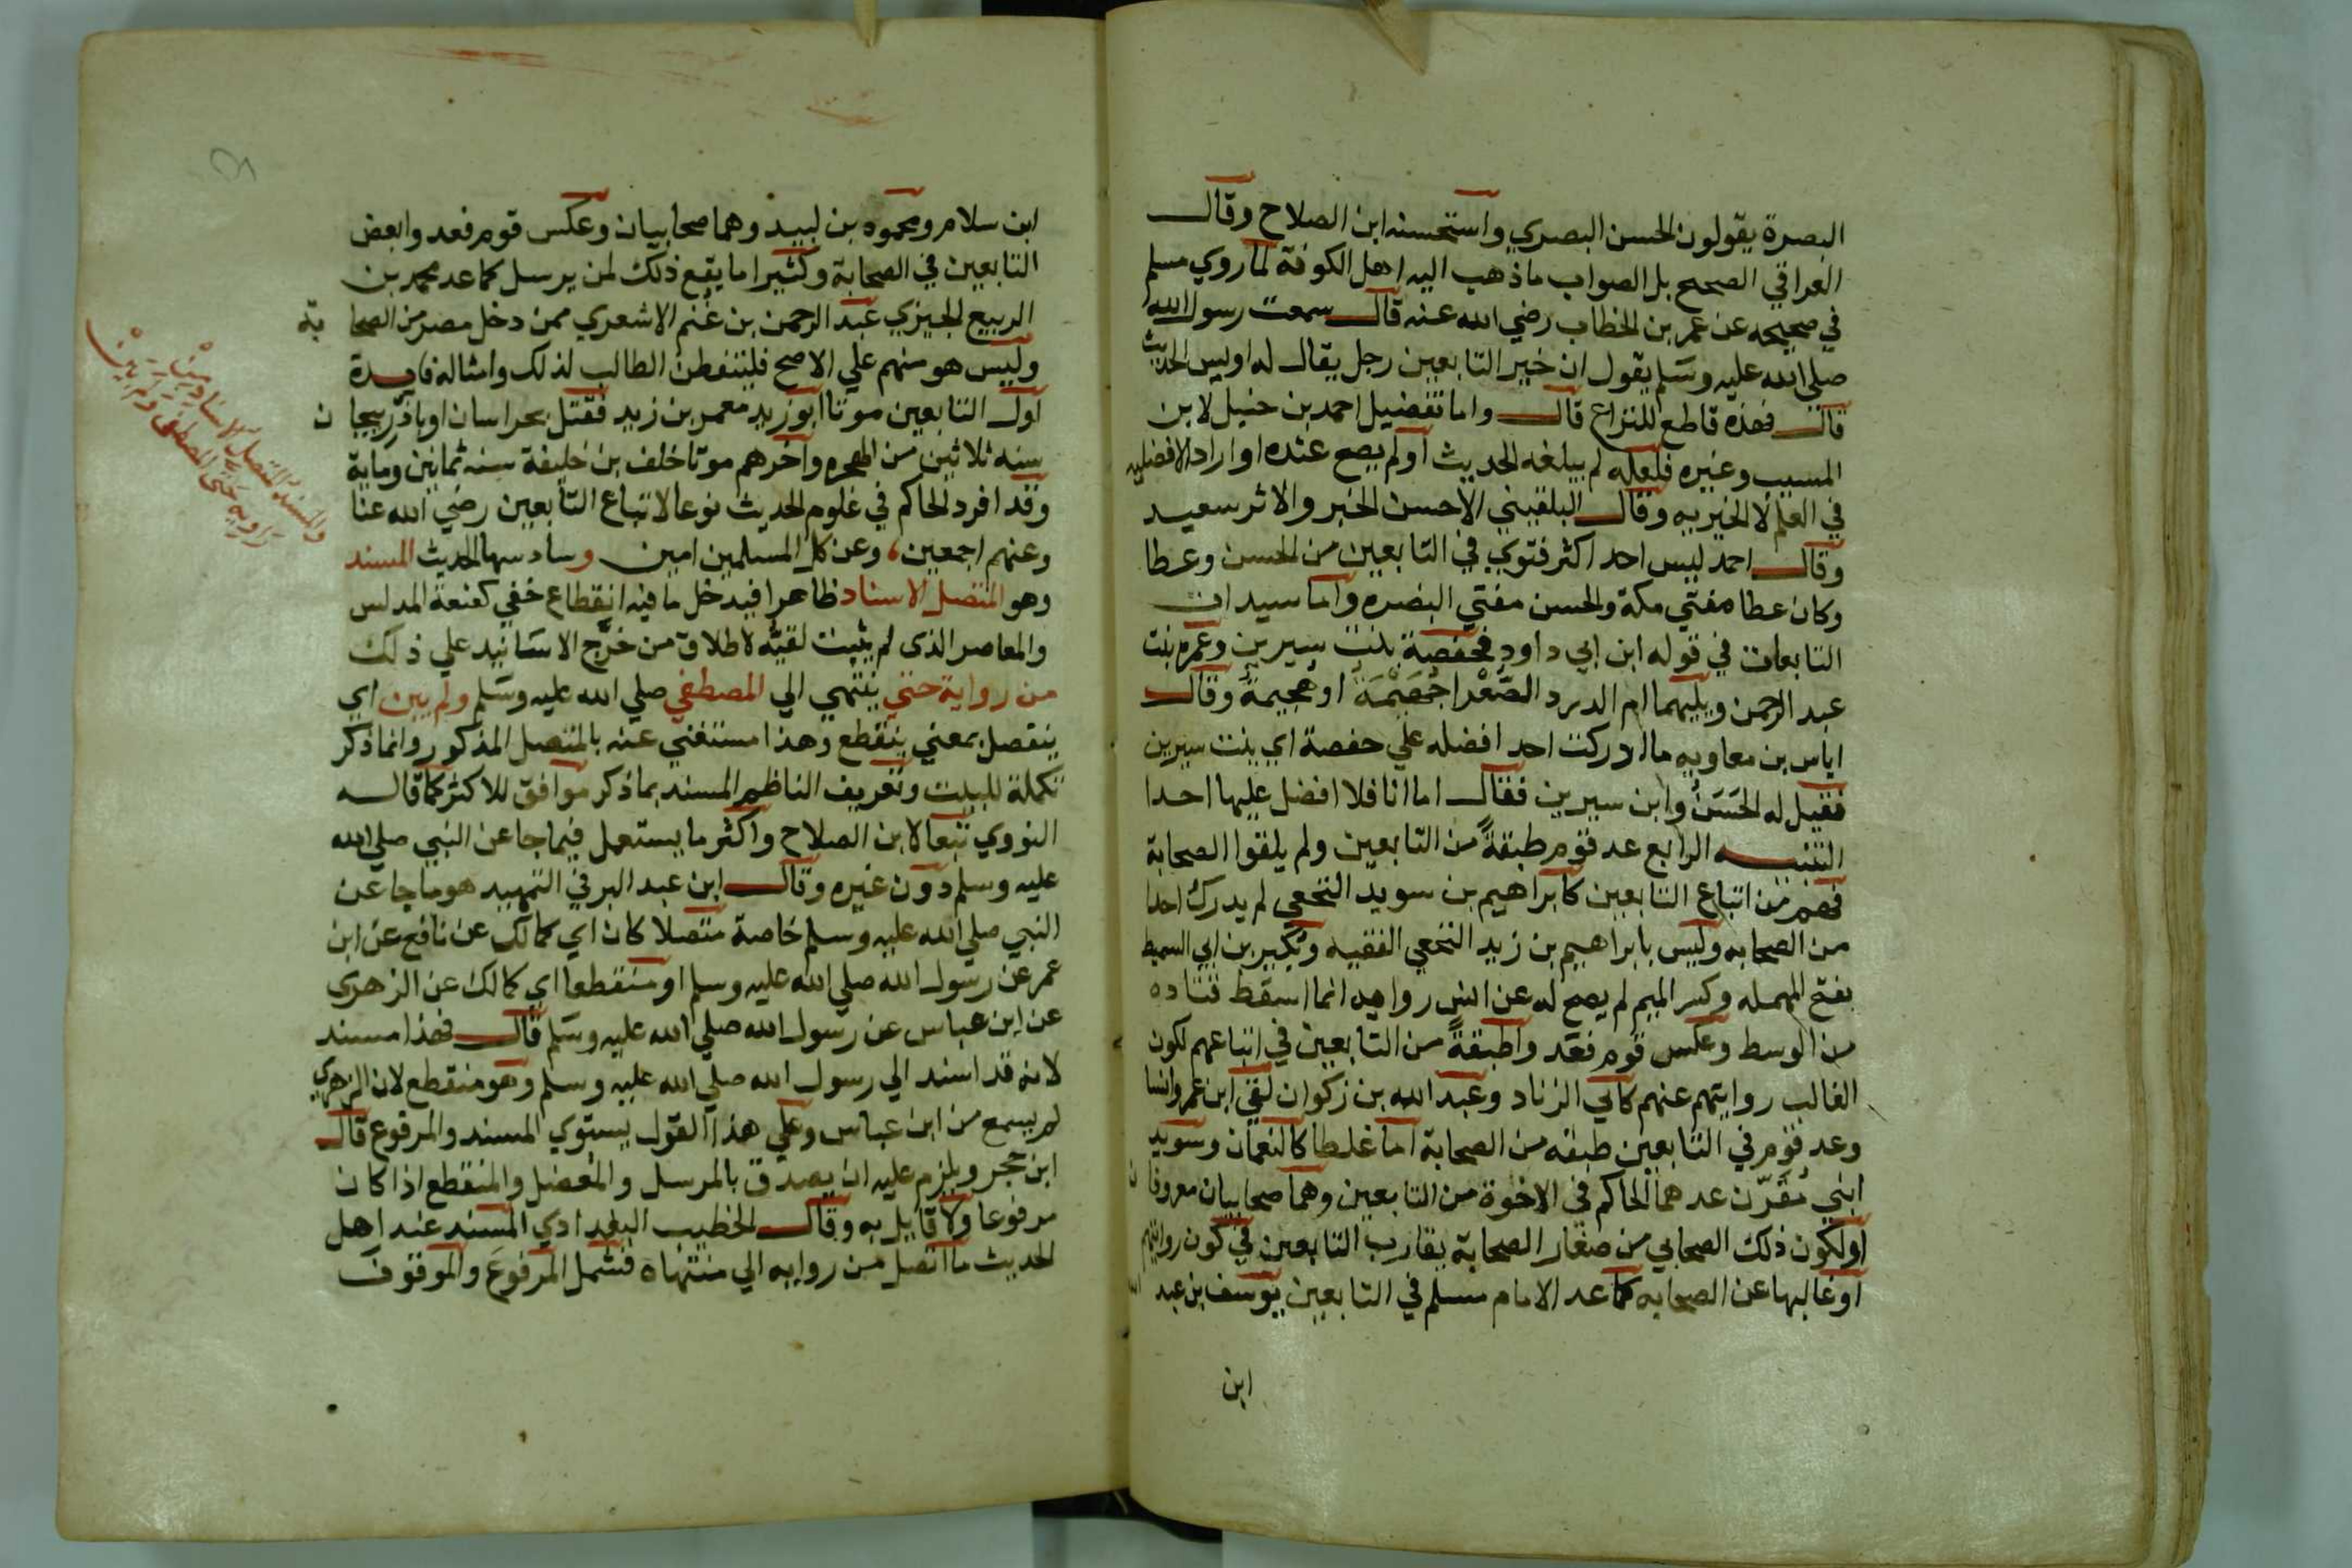 البصرة يقولون الحسن البصري واستحسنه ابن الصلاح وقال
العراقي الصحيح بل الصواب ما ذهب اليه اهل الكوفة لما روي مسلم
في صحيحه عن عمر بن الخطاب رضي الله عنه قال سمعت رسول الله
صلى الله عليه وسلم يقول ان خير التابعين رجل يقال له اويس الحديث
قال فهذه قاطع للنزاع قال واما تفضيل احمد بن حنبل لابن
المسيب وغيره فلعله لم يبلغه الحديث او لم يصح عنده او اراد الافضليه
في العلم لا الخيريه وقال البلقيني الاحسن الخبر والاثر سعيد
وقال احمد ليس احد اكثر فتوي في التابعين من الحسن وعطا
وكان عطا مفتي مكة والحسن مفتي البصره واما سيدات
التابعات في قوله ابن ابي داود فحفصة بنت سيرين وعمره بنت
عبد الرحمن ويليهما ام الدرد الصغرا جهيمة او هجيمة وقال
اياس بن معاويه ما ادركت احد افضله علي حفصة اي بنت سيرين
فقيل له الحسن وابن سيرين فقال اما انا فلا افضل عليها احدا
التنبيه الرابع عد قوم طبقة من التابعين ولم يلقوا الصحابة
فهم من اتباع التابعين كابراهيم بن سويد النخعي لم يدرك احدا
من الصحابه وليس بابراهيم بن زيد النخعي الفقيه وبكير بن ابي السميط
بفتح المهمله وكسر الميم لم يصح له عن انس روايه انما اسقط قتاده
من الوسط وعكس قوم فعد واطبقة من التابعين في اتباعهم لكون
الغالب روايتهم عنهم كابي الزناد وعبد الله بن زكوان لقي ابن عمر وانسا
وعد قوم في التابعين طبقه من الصحابة اما غلطا كالنعمان وسويد
ابني مقرن عدهما الحاكم في الاخوة من التابعين وهما صحابيان معروفان
او لكون ذلك الصحابي من صغار الصحابة يقارب التابعين في كون روايتهم
او غالبها عن الصحابه كما عد الامام مسلم في التابعين يوسف بن عبد الله
ابن
ابن سلام ومحموه بن لبيد وهما صحابيان وعكس قوم فعد وابعض
التابعين في الصحابة وكثيرا ما يقع ذلك لمن يرسل كما عد محمد بن
الربيع الجيزي عبد الرحمن بن غنم الاشعري ممن دخل مصر من الصحابة
وليس هو منهم علي الاصح فليتفطن الطالب لذلك وامثاله فايدة
اول التابعين موتا ابو زيد معمر بن زيد فقتل بخراسان او باذربيجان
سنه ثلاثين من الهجره واخرهم موتا خلف بن خليفة سنه ثمانين وماية
وقد افرد الحاكم في علوم الحديث نوعا لاتباع التابعين رضي الله عنا
وعنهم اجمعين، وعن كل المسلمين امين وسادسها الحديث المسند
وهو المتصل الاسناد ظاهرا فيدخل ما فيه انقطاع خفي كعنعة المدلس
والمعاصر الذى لم يثبت لقيه لاطلاق من خرج الاسانيد علي ذلك
من رواية حتي ينتهي الي المصطفي صلي الله عليه وسلم ولم يبن اي
ينفصل بمعني ينقطع وهذا مستغني عنه بالمتصل المذكور وانما ذكر
تكملة للبيت وتعريف الناظم المسند بما ذكر موافق للاكثر كما قاله
النووي تبعا لابن الصلاح واكثر ما يستعمل فيما جا عن النبي صلي الله
عليه وسلم دون غيره وقال ابن عبد البر في التمهيد هو ما جا عن
النبي صلي الله عليه وسلم خاصة متصلا كان اي كمالك عن نافع عن ابن
عمر عن رسول الله صلي الله عليه وسلم او منقطعا اي كمالك عن الزهري
عن ابن عباس عن رسول الله صلي الله عليه وسلم قال فهذا مسند
لانه قد اسند الي رسول الله صلي الله عليه وسلم وهو منقطع لان الزهري
لم يسمع من ابن عباس وعلي هذا القول يستوي المسند والمرفوع قال
ابن حجر ويلزم عليه ان يصدق بالمرسل والمعضل والمنقطع اذا كان
مرفوعا ولا قايل به وقال الخطيب البغدادي المسند عند اهل
الحديث ما اتصل من روايه الي منتهاه فشمل المرفوع والموقوف
والمسند المتصل الاسناد من
راويه حتى المصطفى ولم يبن